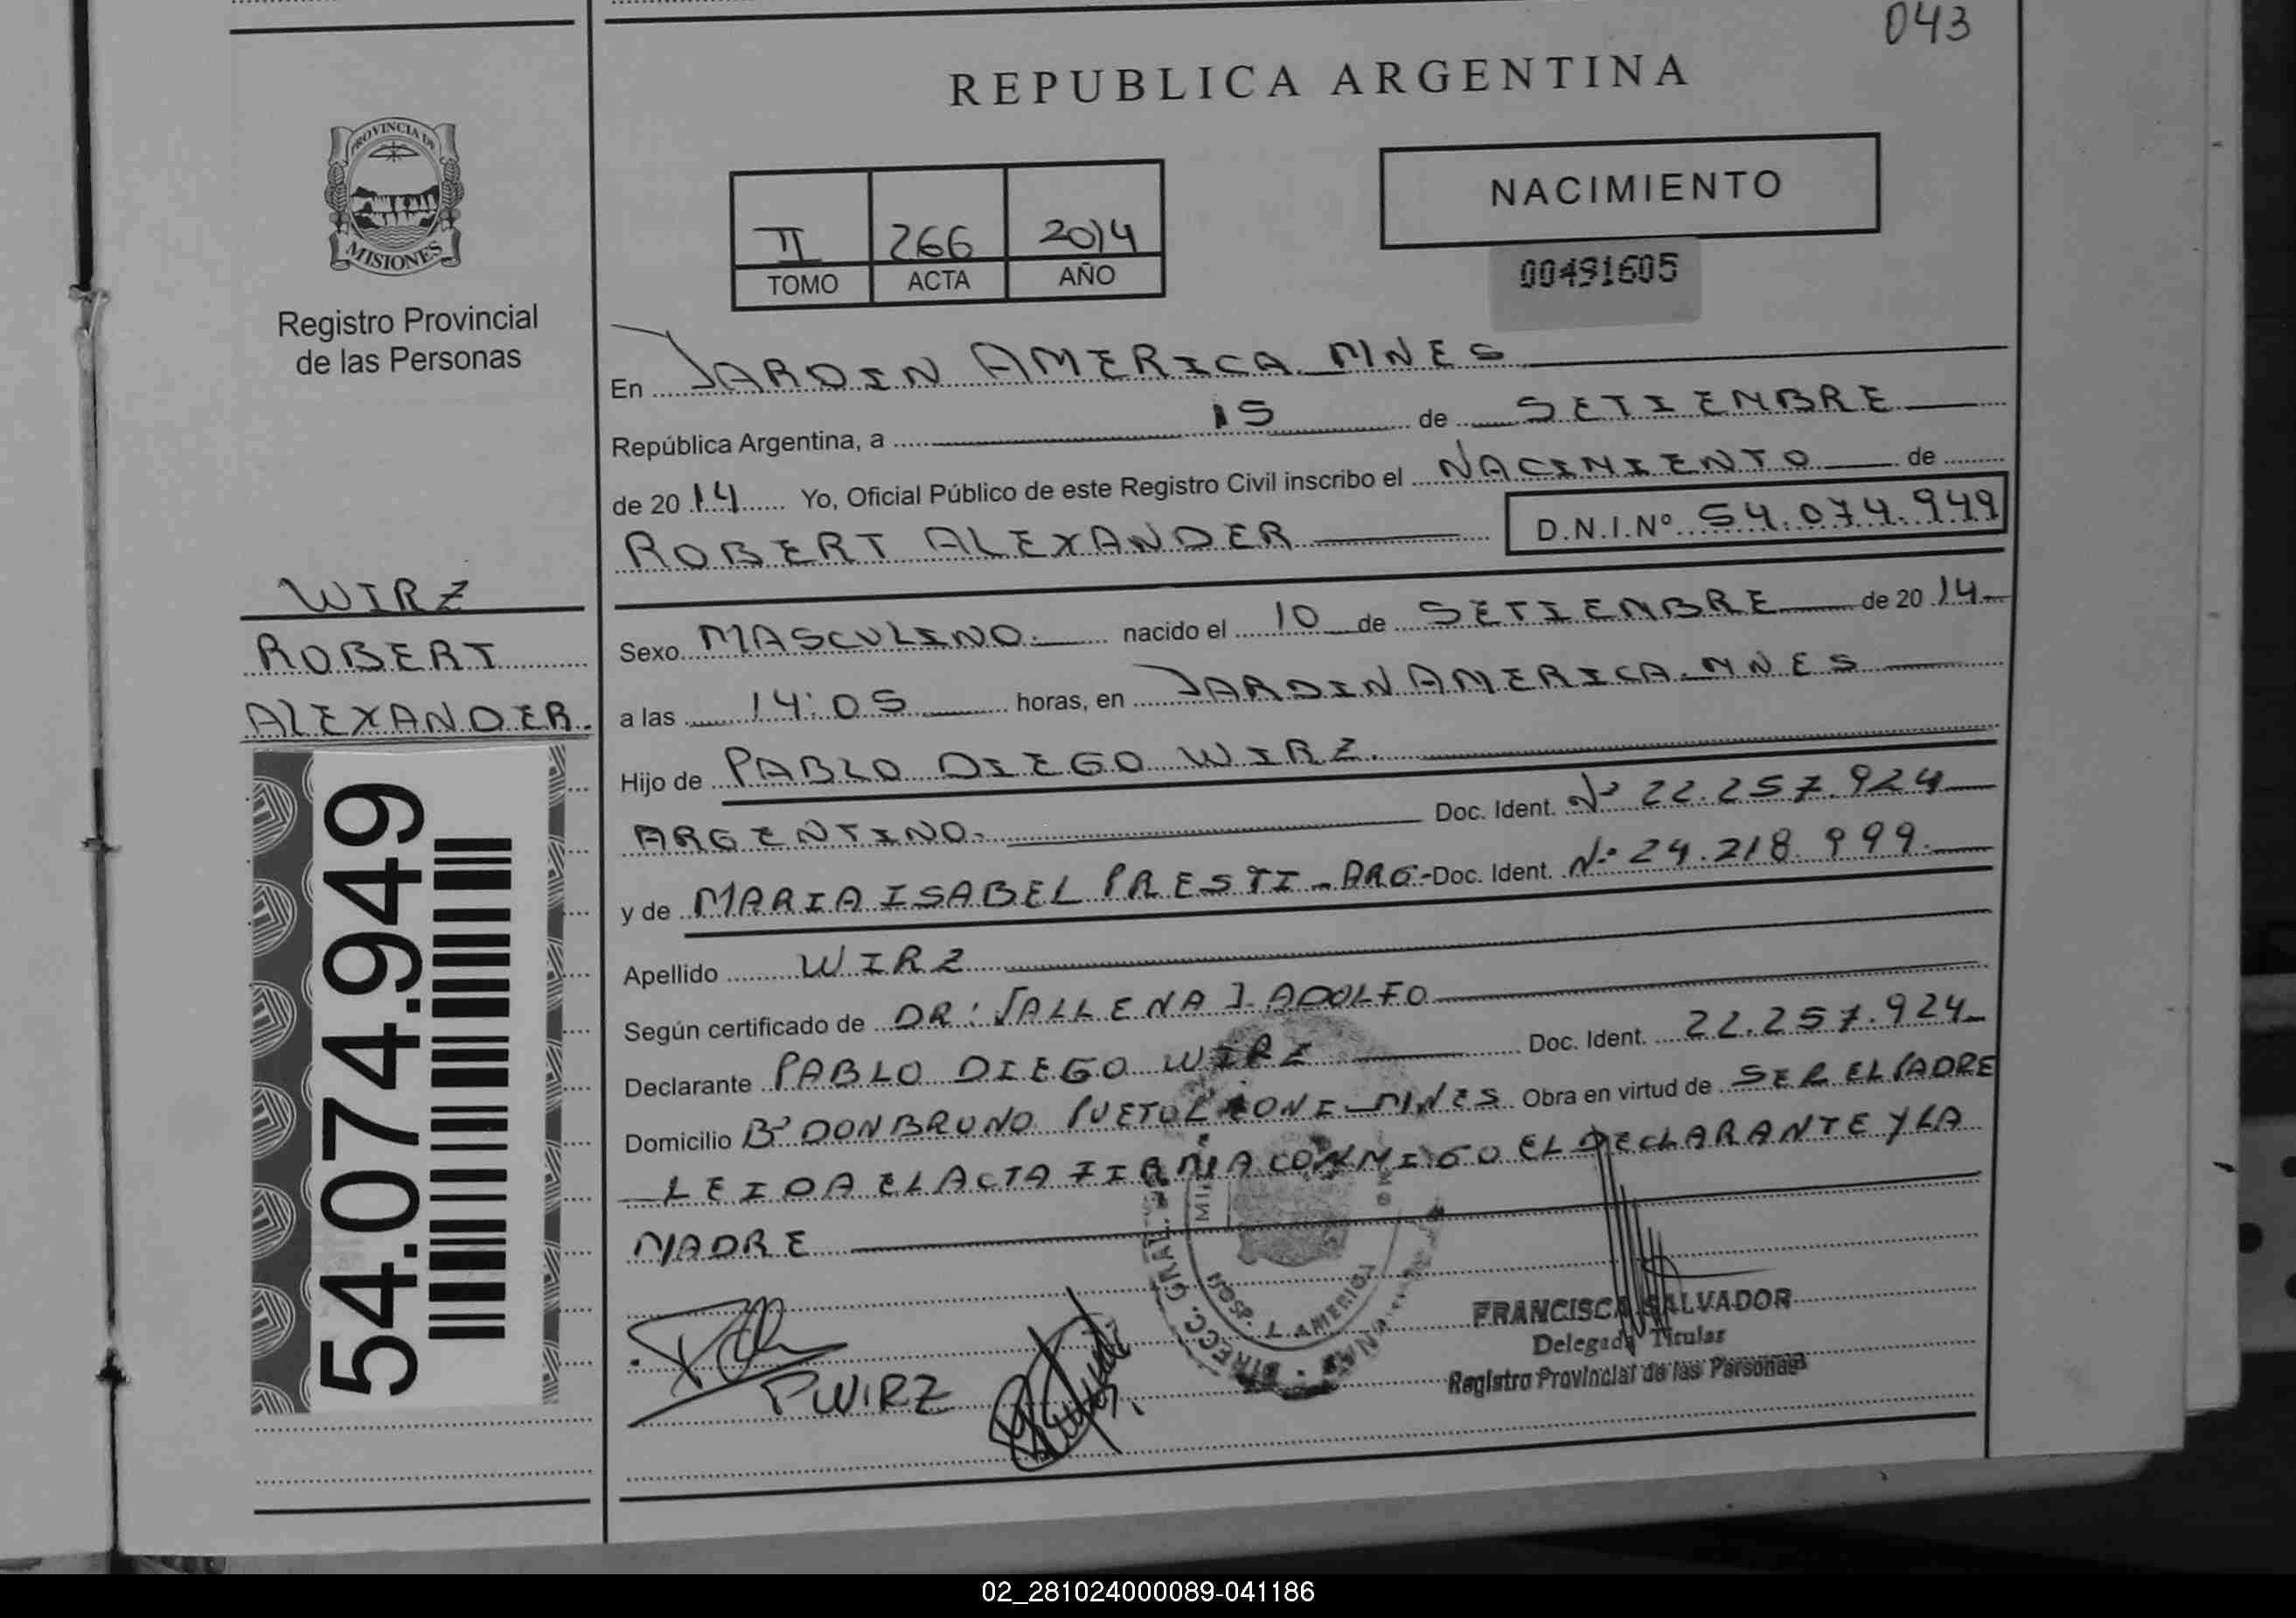 043
REPUBLICA ARGENTINA
PROVINCIA DE
MISIONES
Registro Provincial
de las Personas
NACIMIENTO
II 266 2014
TOMO ACTA AÑO
00491605
En JARDIN AMERICA MNES
República Argentina, a 15 de SETIEMBRE
de 2014 Yo, Oficial Público de este Registro Civil inscribo el NACIMIENTO de
ROBERT ALEXANDER D.N.I.Nº 54.074.949
WIRZ
ROBERT
ALEXANDER.
54.074.949
Sexo MASCULINO. nacido el 10 de SETIEMBRE de 2014
a las 14:05 horas, en JARDIN AMERICA. MNES
Hijo de PABLO DIEGO WIRZ.
ARGENTINO. Doc. Ident. Nº 22.257.924
y de MARIA ISABEL PRESTI - ARG- Doc. Ident. Nº 24.218.999.
Apellido WIRZ
Según certificado de DR: ADOLFO
Declarante PABLO DIEGO WIRZ Doc. Ident. 22.257.924
Domicilio Bº DON BRUNO MNES Obra en virtud de SER EL PADRE
LEIDA EL ACTA FIRMA CONMIGO EL DECLARANTE Y LA
MADRE
P WIRZ
DIRECC. GRAL.
HOSP. AMERICA
FRANCISCA SALVADOR
Delegada Titular
Registro Provincial de las Personas
02_281024000089-041186